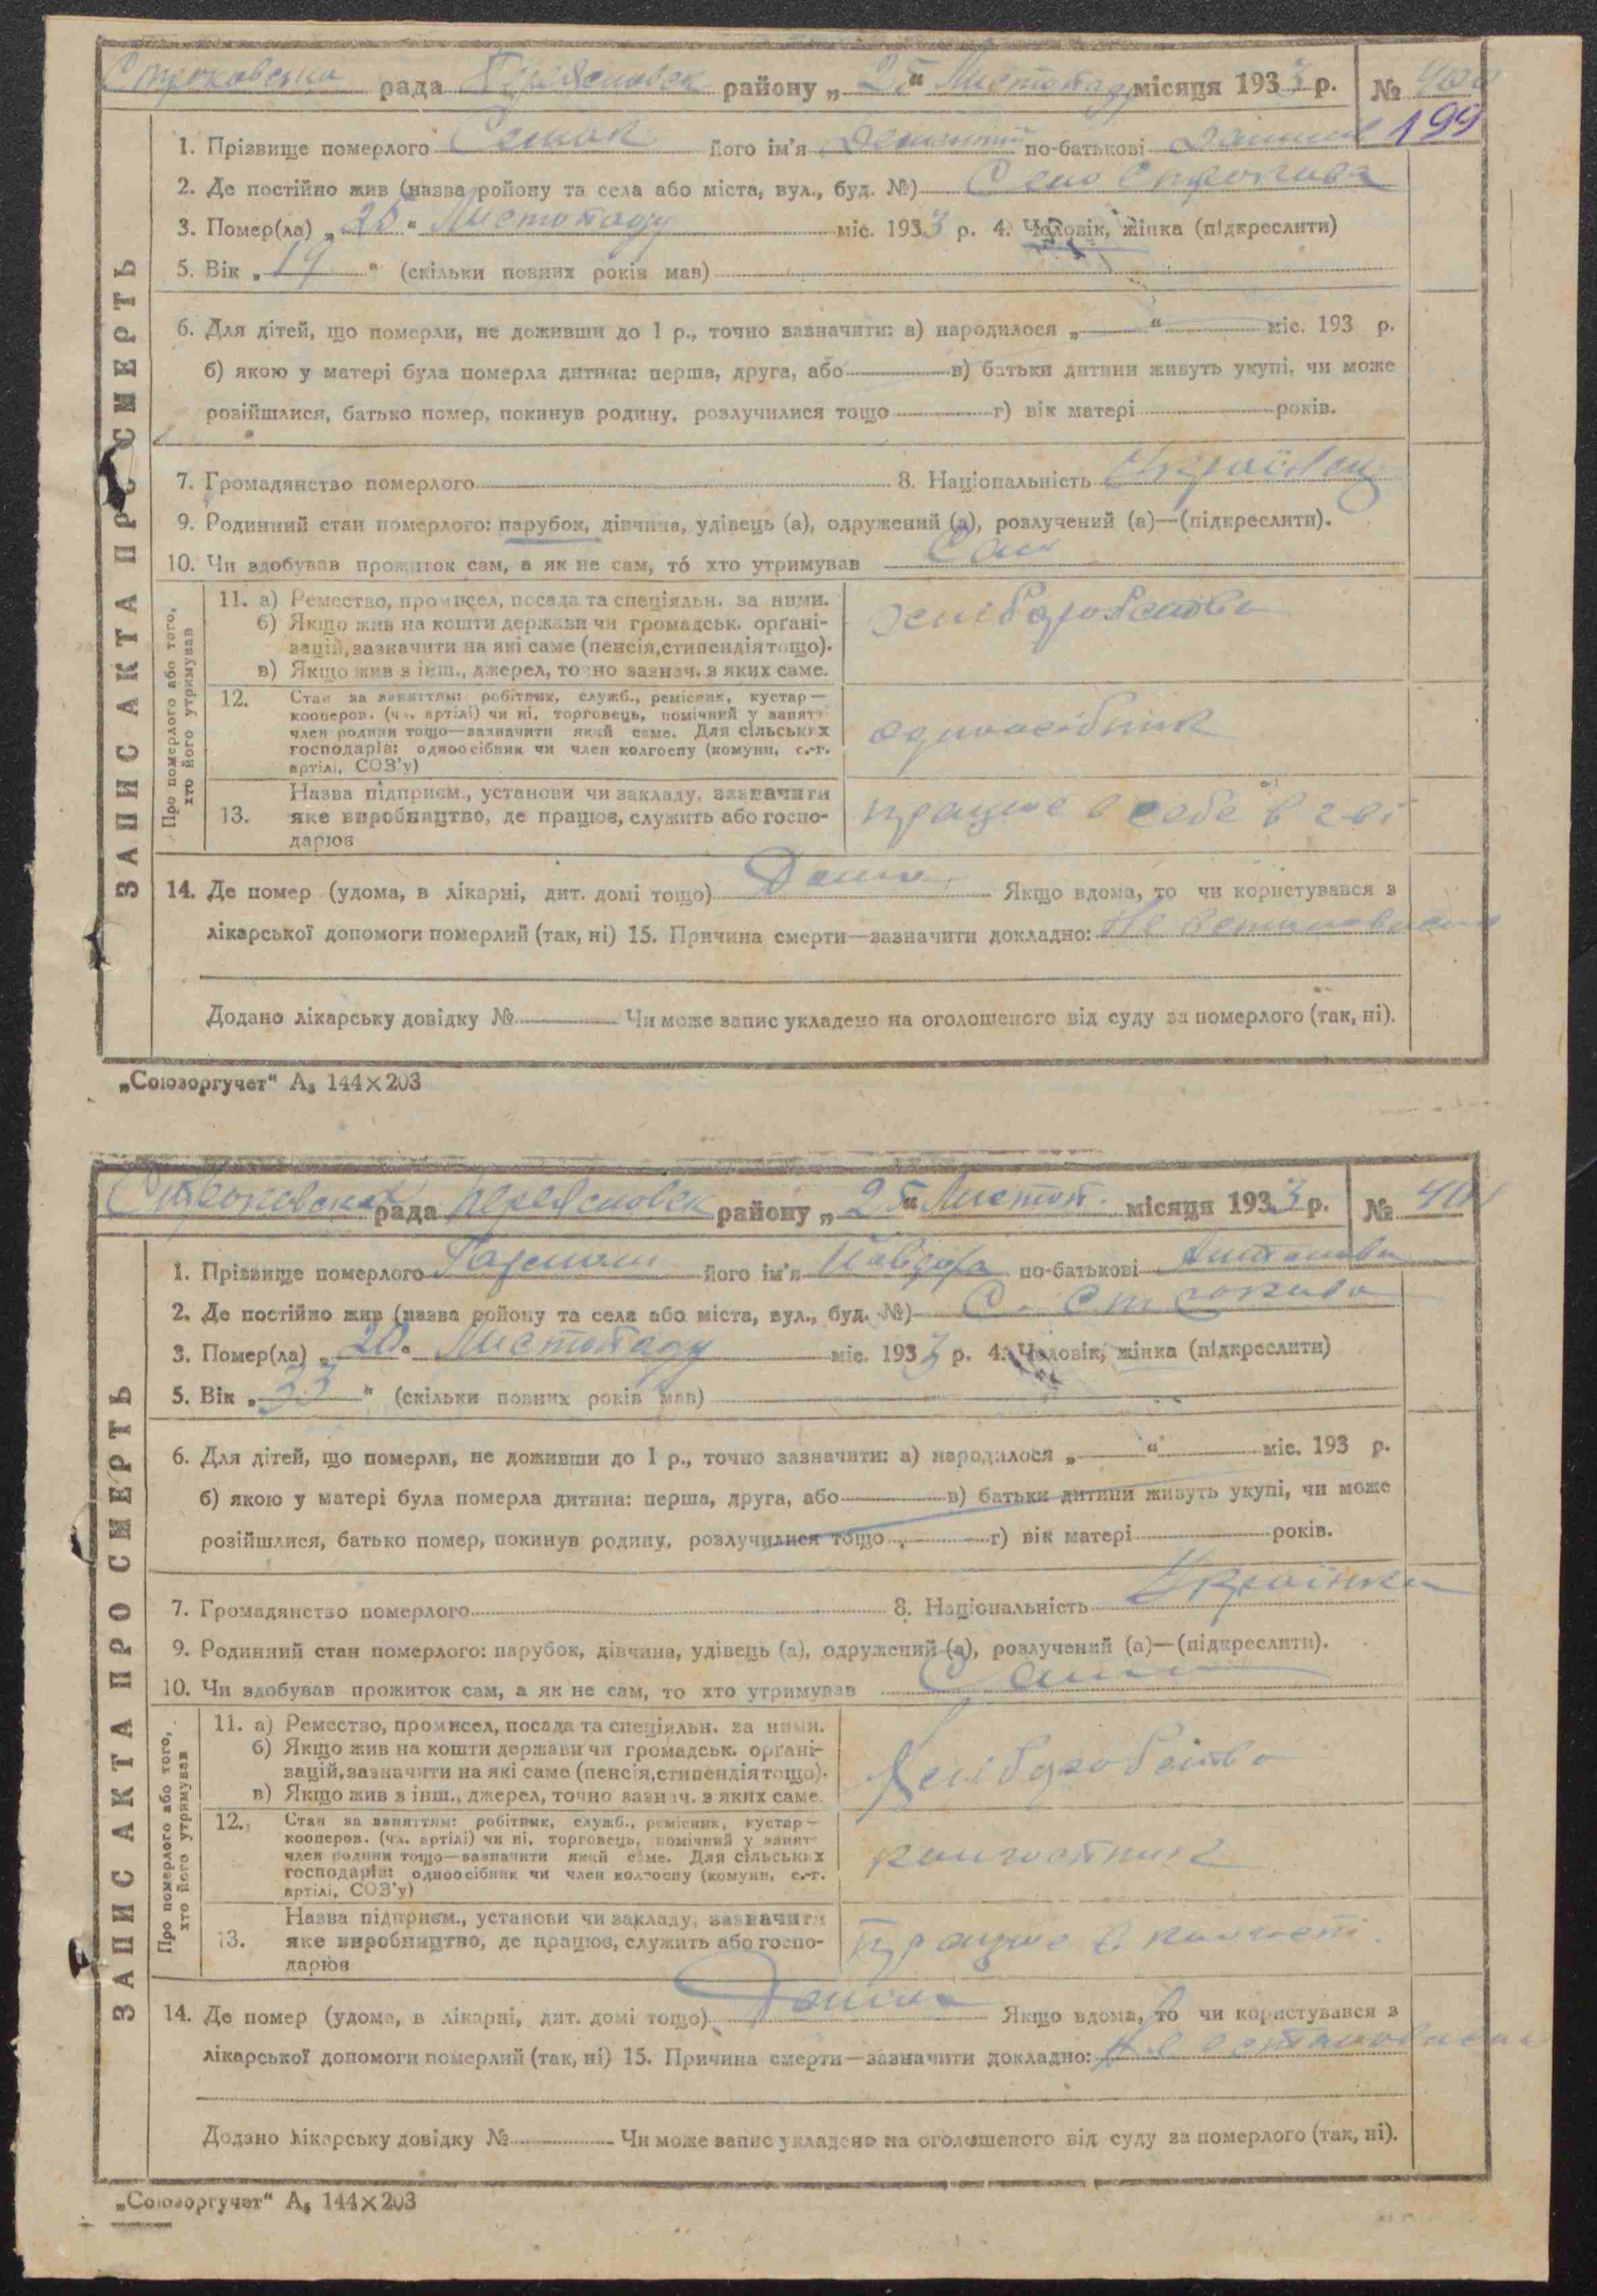 Строковська рада Переясловск району „25“ Листопаду місяця 1933 р. № 400
199
ЗАПИС АКТА ПРО СМЕРТЬ
1. Прізвище померлого його ім'я по-батькові
2. Де постійно жив (назва ройону та села або міста, вул., буд. №) Село Строкова
3. Помер(ла) „25“ Листопаду міс. 1933 р. 4. Чоловік, жінка (підкреслити)
5. Вік „19“ (скільки повних років мав)
6. Для дітей, що померли, не доживши до 1 р., точно зазначити: а) народилося „ “ міс. 193 р.
б) якою у матері була померла дитина: перша, друга, або в) батьки дитини живуть укупі, чи може
розійшлися, батько помер, покинув родину, розлучилися тощо г) вік матері років.
7. Громадянство померлого 8. Національність Українец
9. Родинний стан померлого: парубок, дівчина, удівець (а), одружений (а), розлучений (а)—(підкреслити).
10. Чи здобував прожиток сам, а як не сам, то хто утримував Сам
Про померлого або того, хто його утримував
11. а) Ремество, промисел, посада та спеціяльн. за ними.
б) Якщо жив на кошти держави чи громадськ. органі-
зацій, зазначити на які саме (пенсія, стипендія тощо).
в) Якщо жив з інш., джерел, точно зазнач. з яких саме.
хліборобство
12. Стан за заняттям: робітник, служб., ремісник, кустар—
кооперов. (чл. артілі) чи ні, торговець, помічний у занятті
член родини тощо—зазначити який саме. Для сільських
господарів: одноосібник чи член колгоспу (комуни, с.-г.
артілі, СОЗ'у)
одноосібник
13. Назва підприєм., установи чи закладу, зазначити
яке виробництво, де працює, служить або госпо-
дарює
працює в себе в г-ві
14. Де помер (удома, в лікарні, дит. домі тощо) Дома Якщо вдома, то чи користувався з
лікарської допомоги померлий (так, ні) 15. Причина смерти—зазначити докладно: Не
Додано лікарську довідку № Чи може запис укладено на оголошеного від суду за померлого (так, ні).
„Союзоргучет“ А₅ 144×203
Строковска рада Переясловск району „25“ Листоп. місяця 1933 р. № 401
ЗАПИС АКТА ПРО СМЕРТЬ
1. Прізвище померлого його ім'я по-батькові
2. Де постійно жив (назва ройону та села або міста, вул., буд. №) С. Строкова
3. Помер(ла) „20“ Листопаду міс. 1933 р. 4. Чоловік, жінка (підкреслити)
5. Вік „33“ (скільки повних років мав)
6. Для дітей, що померли, не доживши до 1 р., точно зазначити: а) народилося „ “ міс. 193 р.
б) якою у матері була померла дитина: перша, друга, або в) батьки дитини живуть укупі, чи може
розійшлися, батько помер, покинув родину, розлучилися тощо г) вік матері років.
7. Громадянство померлого 8. Національність Українка
9. Родинний стан померлого: парубок, дівчина, удівець (а), одружений (а), розлучений (а)—(підкреслити).
10. Чи здобував прожиток сам, а як не сам, то хто утримував Сама
Про померлого або того, хто його утримував
11. а) Ремество, промисел, посада та спеціяльн. за ними.
б) Якщо жив на кошти держави чи громадськ. органі-
зацій, зазначити на які саме (пенсія, стипендія тощо).
в) Якщо жив з інш., джерел, точно зазнач. з яких саме.
Хліборобство
12. Стан за заняттям: робітник, служб., ремісник, кустар—
кооперов. (чл. артілі) чи ні, торговець, помічний у занят
член родини тощо—зазначити який саме. Для сільських
господарів: одноосібник чи член колгоспу (комуни, с.-г.
артілі, СОЗ'у)
колгоспник
13. Назва підприєм., установи чи закладу, зазначити
яке виробництво, де працює, служить або госпо-
дарює
працює в колгоспі.
14. Де помер (удома, в лікарні, дит. домі тощо) Дома Якщо вдома, то чи користувався з
лікарської допомоги померлий (так, ні) 15. Причина смерти—зазначити докладно: Не
Додано лікарську довідку № Чи може запис укладено на оголошеного від суду за померлого (так, ні).
„Союзоргучет“ А₅ 144×203